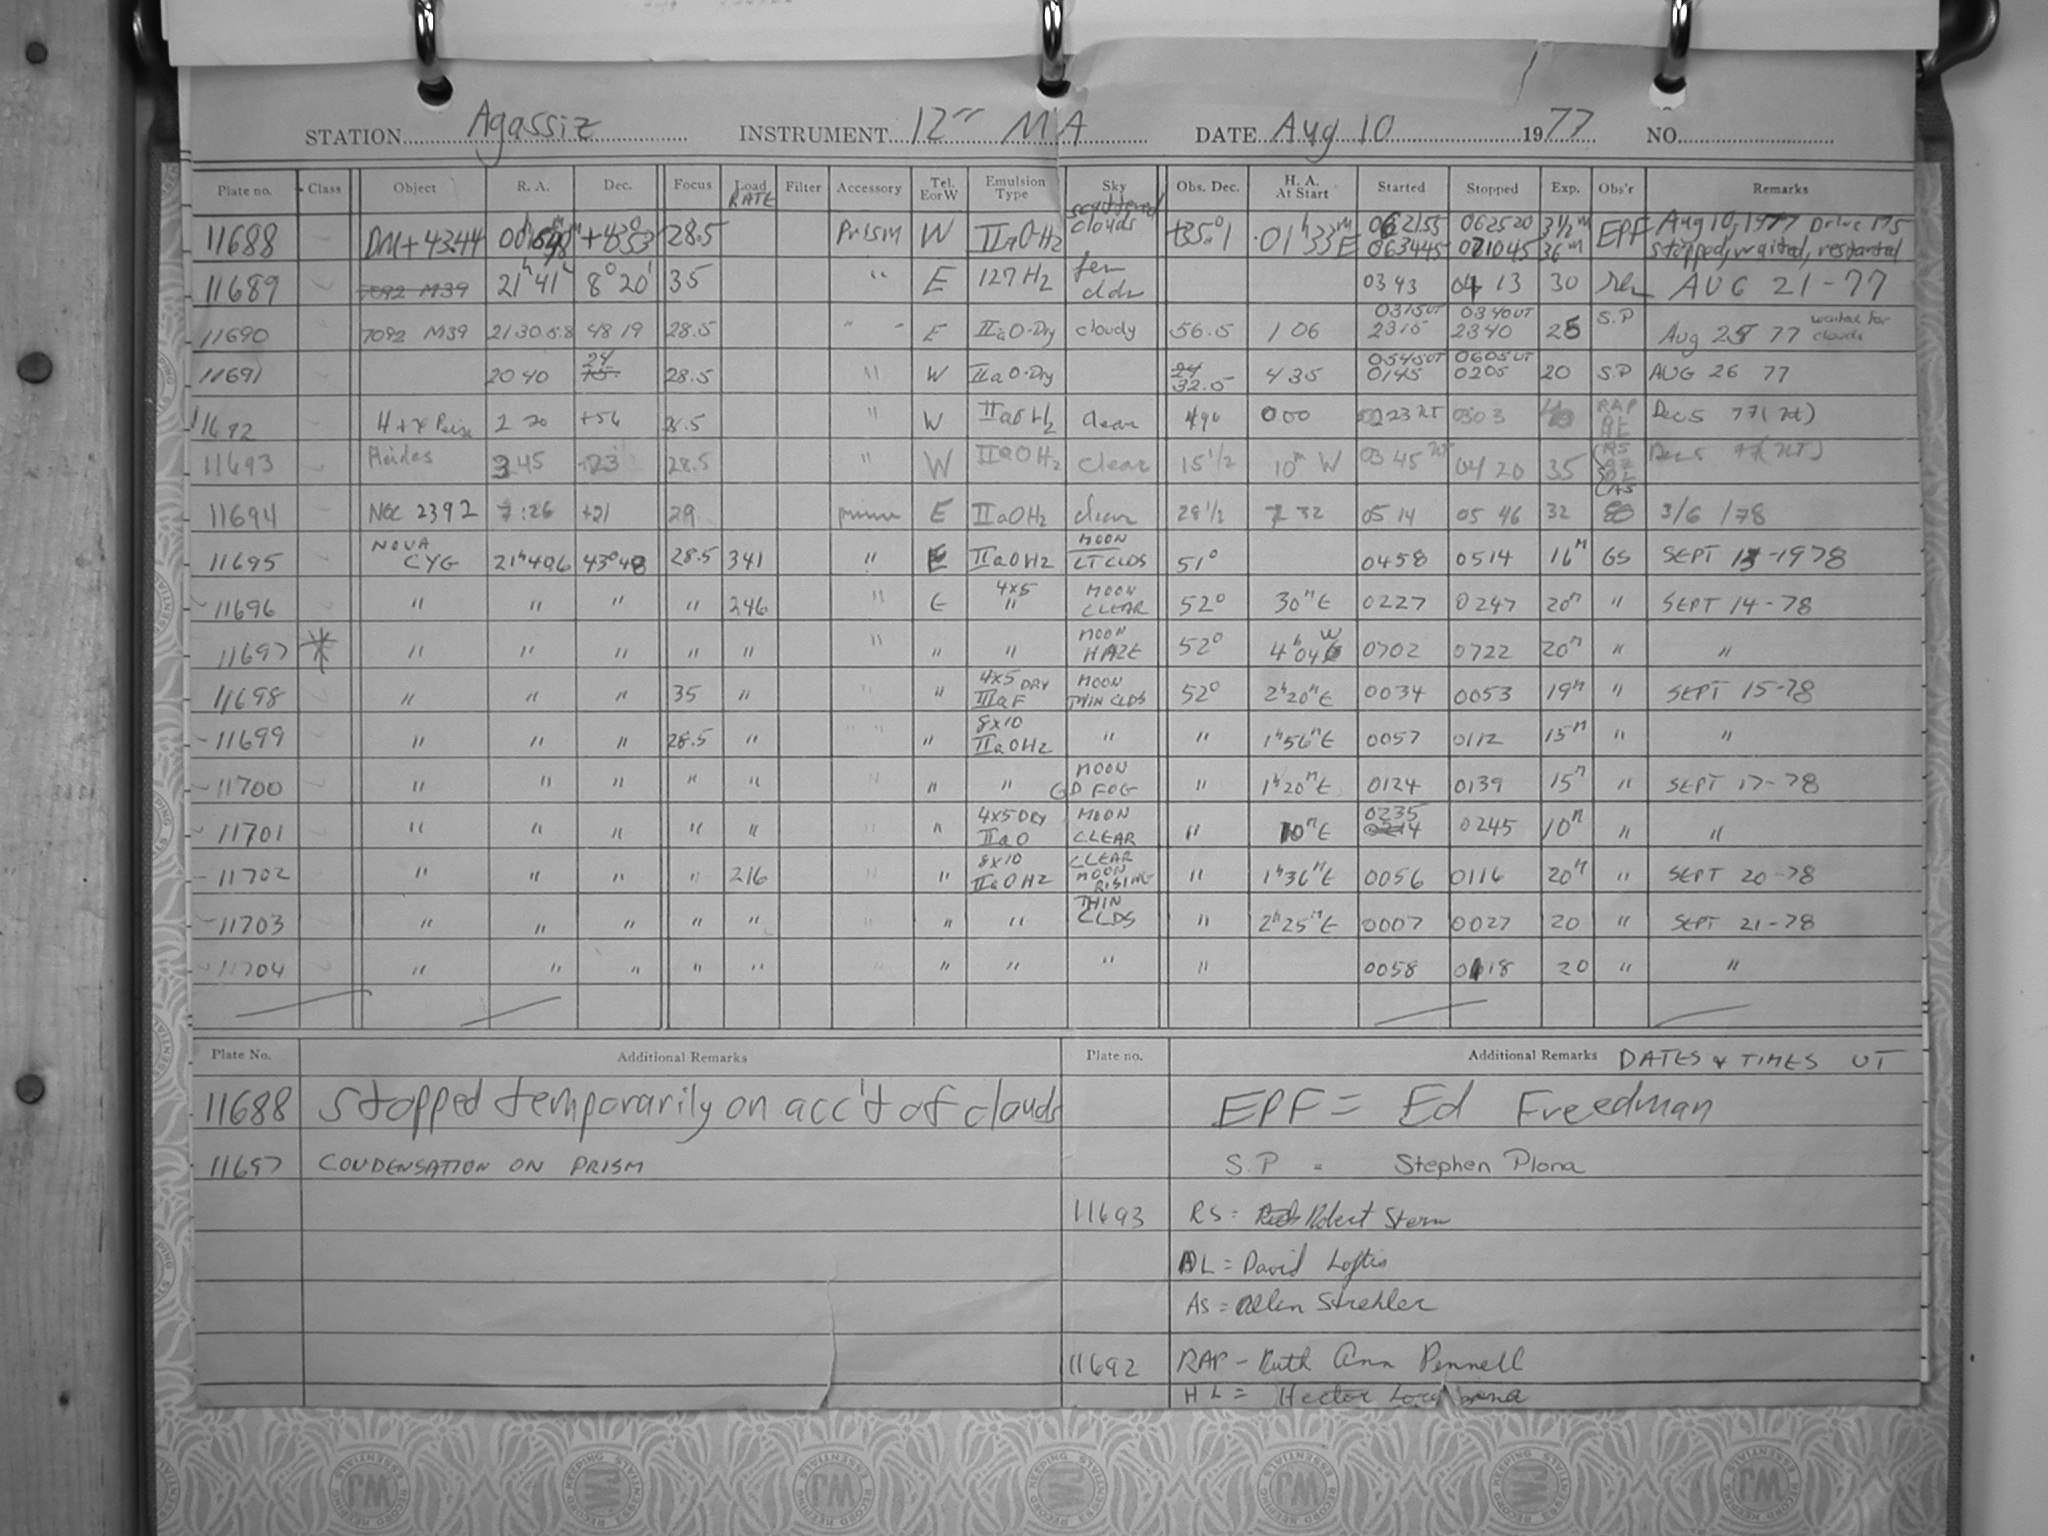 STATION Agassiz INSTRUMENT 12" MA DATE Aug 10 1977 NO.
Plate no. Class Object R. A. Dec. Focus Load RATE Filter Accessory Tel. E or W Emulsion Type Sky Obs. Dec. H. A. At Start Started Stopped Exp. Obs'r Remarks
11688 DM+4344 28.5 Prism W IIaO H2 scattered clouds +35°.1 01h33mE 062155 062520 3 1/2m EPF Aug 10, 1977 Drive 195
063445 071045 36m stopped, waited, restarted
11689 7092 M39 21h41 8°20' 35 " E 127 H2 few clds 0343 0413 30 AUG 21-77
11690 7092 M39 21 30 5.8 48 19 28.5 " " E IIaO-Dry cloudy 56.5 1 06 0315UT 2315 0340UT 2340 25 S.P Aug 25 77 waited for clouds
11691 20 40 24 28.5 " W IIaO-Dry 24 32.5 4 35 0545UT 0145 0605UT 0205 20 S.P AUG 26 77
11692 2 20 +56 28.5 " W IIaO H2 clear 49° 000 0303 RAP Dec 5 77
11693 3 45 23 28.5 " W IIaO H2 clear 15 1/2 10m W 03 45 04 20 35 RS DL AS Dec 5
11694 NGC 2392 7:26 +21 29 prism E IIaO H2 clear 28 1/2 32 05 14 05 46 32 3/6 /78
11695 NOVA CYG 21h40.6 43°48 28.5 341 " E IIaO H2 MOON LT CLDS 51° 0458 0514 16M GS SEPT 13-1978
11696 " " " " 246 " E 4x5 " MOON CLEAR 52° 30ME 0227 0247 20M " SEPT 14-78
11697 * " " " " " " " " MOON HAZE 52° 4h04 W 0702 0722 20M " "
11698 " " " 35 " " " 4x5 DRY IIIaF MOON THIN CLDS 52° 2h20ME 0034 0053 19M " SEPT 15-78
11699 " " " 28.5 " " " " 8x10 IIaO H2 " " 1h56ME 0057 0112 15M " "
11700 " " " " " " " " MOON GD FOG " 1h20ME 0124 0139 15M " SEPT 17-78
11701 " " " " " " " 4x5 DRY IIaO MOON CLEAR " 10ME 0235 0245 10M " "
11702 " " " " 216 " " 8x10 IIaO H2 CLEAR MOON RISING " 1h36ME 0056 0116 20M " SEPT 20-78
11703 " " " " " " " " THIN CLDS " 2h25ME 0007 0027 20 " SEPT 21-78
11704 " " " " " " " " " " 0058 0118 20 " "
Plate No. Additional Remarks Plate no. Additional Remarks DATES & TIMES UT
11688 Stopped temporarily on acc't of clouds EPF = Ed Freedman
11697 CONDENSATION ON PRISM S.P = Stephen Plona
11693 RS = Robert Stern
DL = David Loftis
AS = Allen Strehler
11692 RAP - Ruth Ann Pennell
HL = Hector